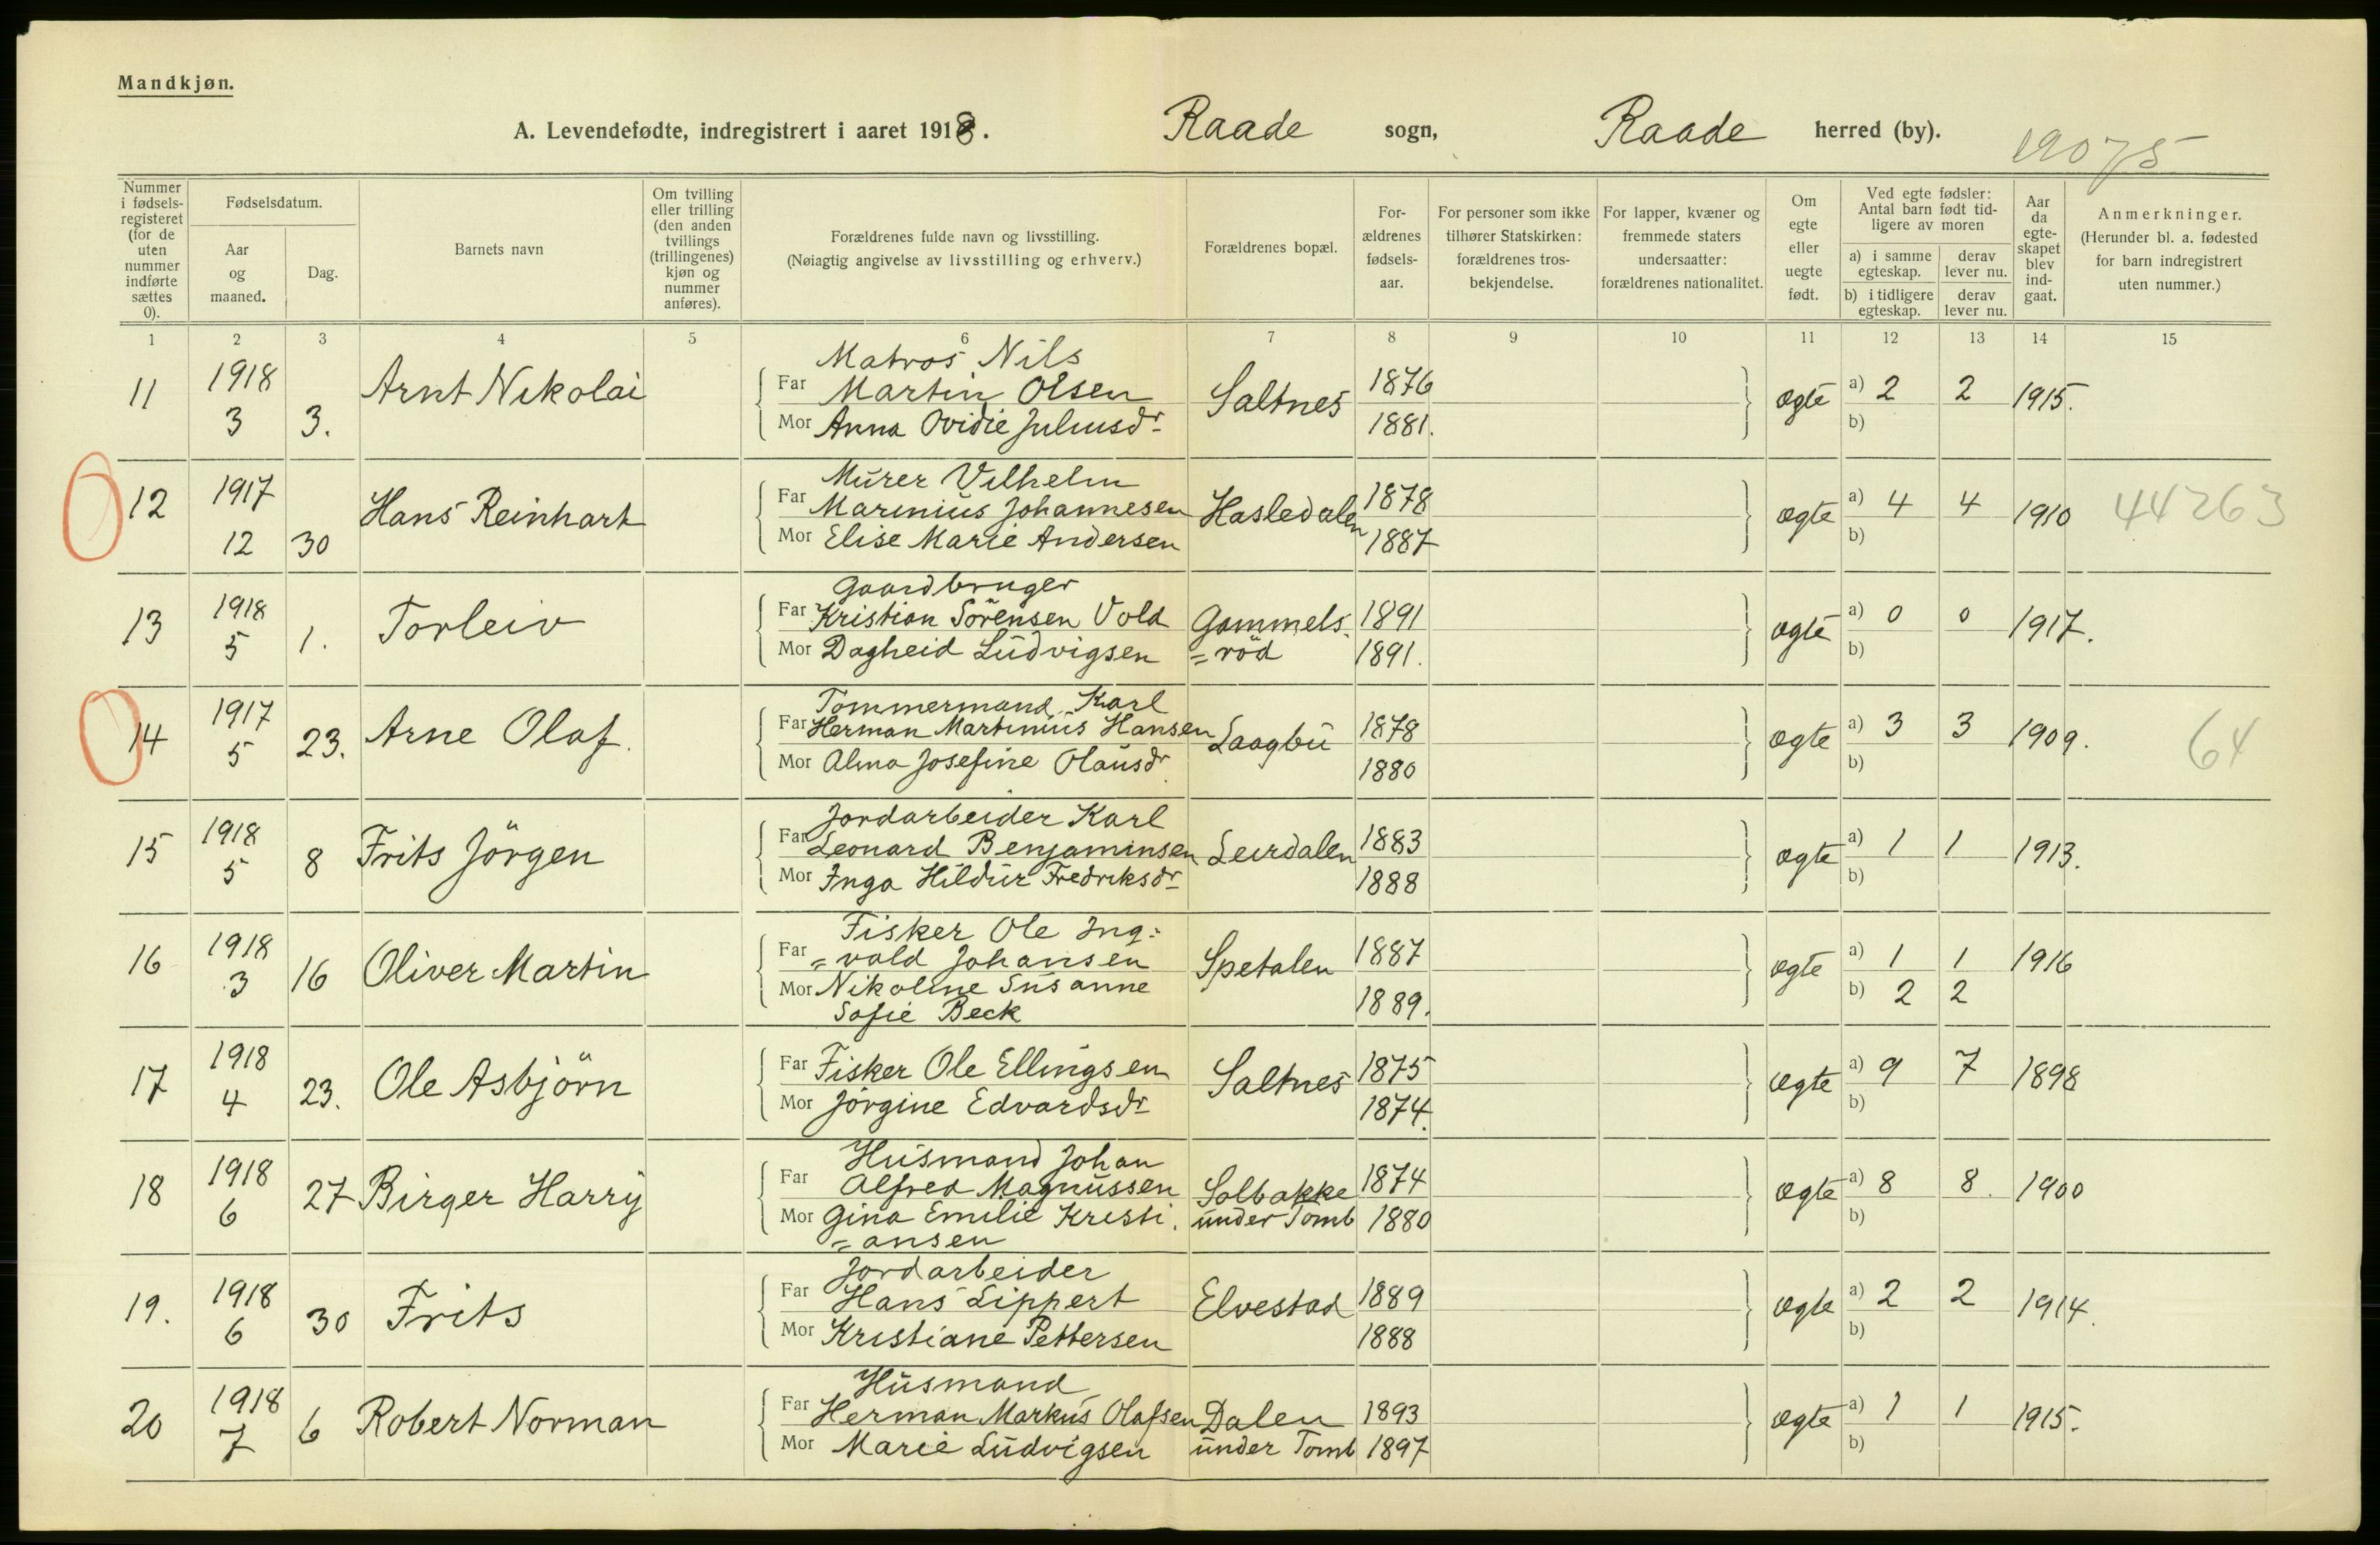 Mandkjøn.
A. Levendefødte, indregistrert i aaret 1918. Raade sogn, Raade herred (by).
19075
Nummer i fødselsregisteret (for de uten nummer indførte sættes 0).
Fødselsdatum.
Aar og maaned.
Dag.
Barnets navn
Om tvilling eller trilling (den anden tvillings (trillingenes) kjøn og nummer anføres).
Forældrenes fulde navn og livsstilling.
(Nøiagtig angivelse av livsstilling og erhverv.)
Forældrenes bopæl.
Forældrenes fødselsaar.
For personer som ikke tilhører Statskirken: forældrenes trosbekjendelse.
For lapper, kvæner og fremmede staters undersaatter: forældrenes nationalitet.
Om egte eller uegte født.
Ved egte fødsler: Antal barn født tidligere av moren
a) i samme egteskap.
derav lever nu.
b) i tidligere egteskap.
derav lever nu.
Aar da egteskapet blev indgaat.
Anmerkninger.
(Herunder bl. a. fødested for barn indregistrert uten nummer.)
1 2 3 4 5 6 7 8 9 10 11 12 13 14 15
Matros Nils
11 1918 Arnt Nikolai Far Martin Olsen Saltnes 1876 ægte a) 2 2 1915.
3 3. Mor Anna Ovidie Juliusdr 1881. b)
Murer Vilhelm
12 1917 Hans Reinhart Far Marinius Johannesen Hasledalen 1878 ægte a) 4 4 1910 44263
12 30 Mor Elise Marie Andersen 1887 b)
Gaardbruger
13 1918 Torleiv Far Kristian Sörensen Vold Gammels- 1891 ægte a) 0 0 1917.
5 1. Mor Dagheid Ludvigsen =röd 1891. b)
Tommermand Karl
14 1917 Arne Olaf. Far Herman Martinius Hansen Laagbu 1878 ægte a) 3 3 1909. 64
5 23. Mor Alma Josefine Olausdr. 1880 b)
Jordarbeider Karl
15 1918 Frits Jörgen Far Leonard Benjaminsen Leirdalen 1883 ægte a) 1 1 1913.
5 8 Mor Inga Hildur Fredriksdr 1888 b)
Fisker Ole Ing=
16 1918 Oliver Martin Far =vald Johansen Spetalen 1887 ægte a) 1 1 1916
3 16 Mor Nikoline Susanne 1889. b) 2 2
Sofie Beck
17 1918 Ole Asbjörn Far Fisker Ole Ellingsen Saltnes 1875 ægte a) 9 7 1898
4 23. Mor Jörgine Edvardsdr 1874. b)
Husmand Johan
18 1918 Birger Harry Far Alfred Magnussen Solbakke 1874 ægte a) 8 8. 1900
6 27 Mor Gina Emilie Kristi. under Tomb 1880 b)
=ansen
Jordarbeider
19. 1918 Frits Far Hans Lippert Elvestad 1889 ægte a) 2 2 1914.
6 30 Mor Kristiane Pettersen 1888 b)
Husmand
20 1918 Robert Norman Far Herman Markus Olafsen Dalen 1893 ægte a) 1 1 1915.
7 6 Mor Marie Ludvigsen under Tomb 1897 b)